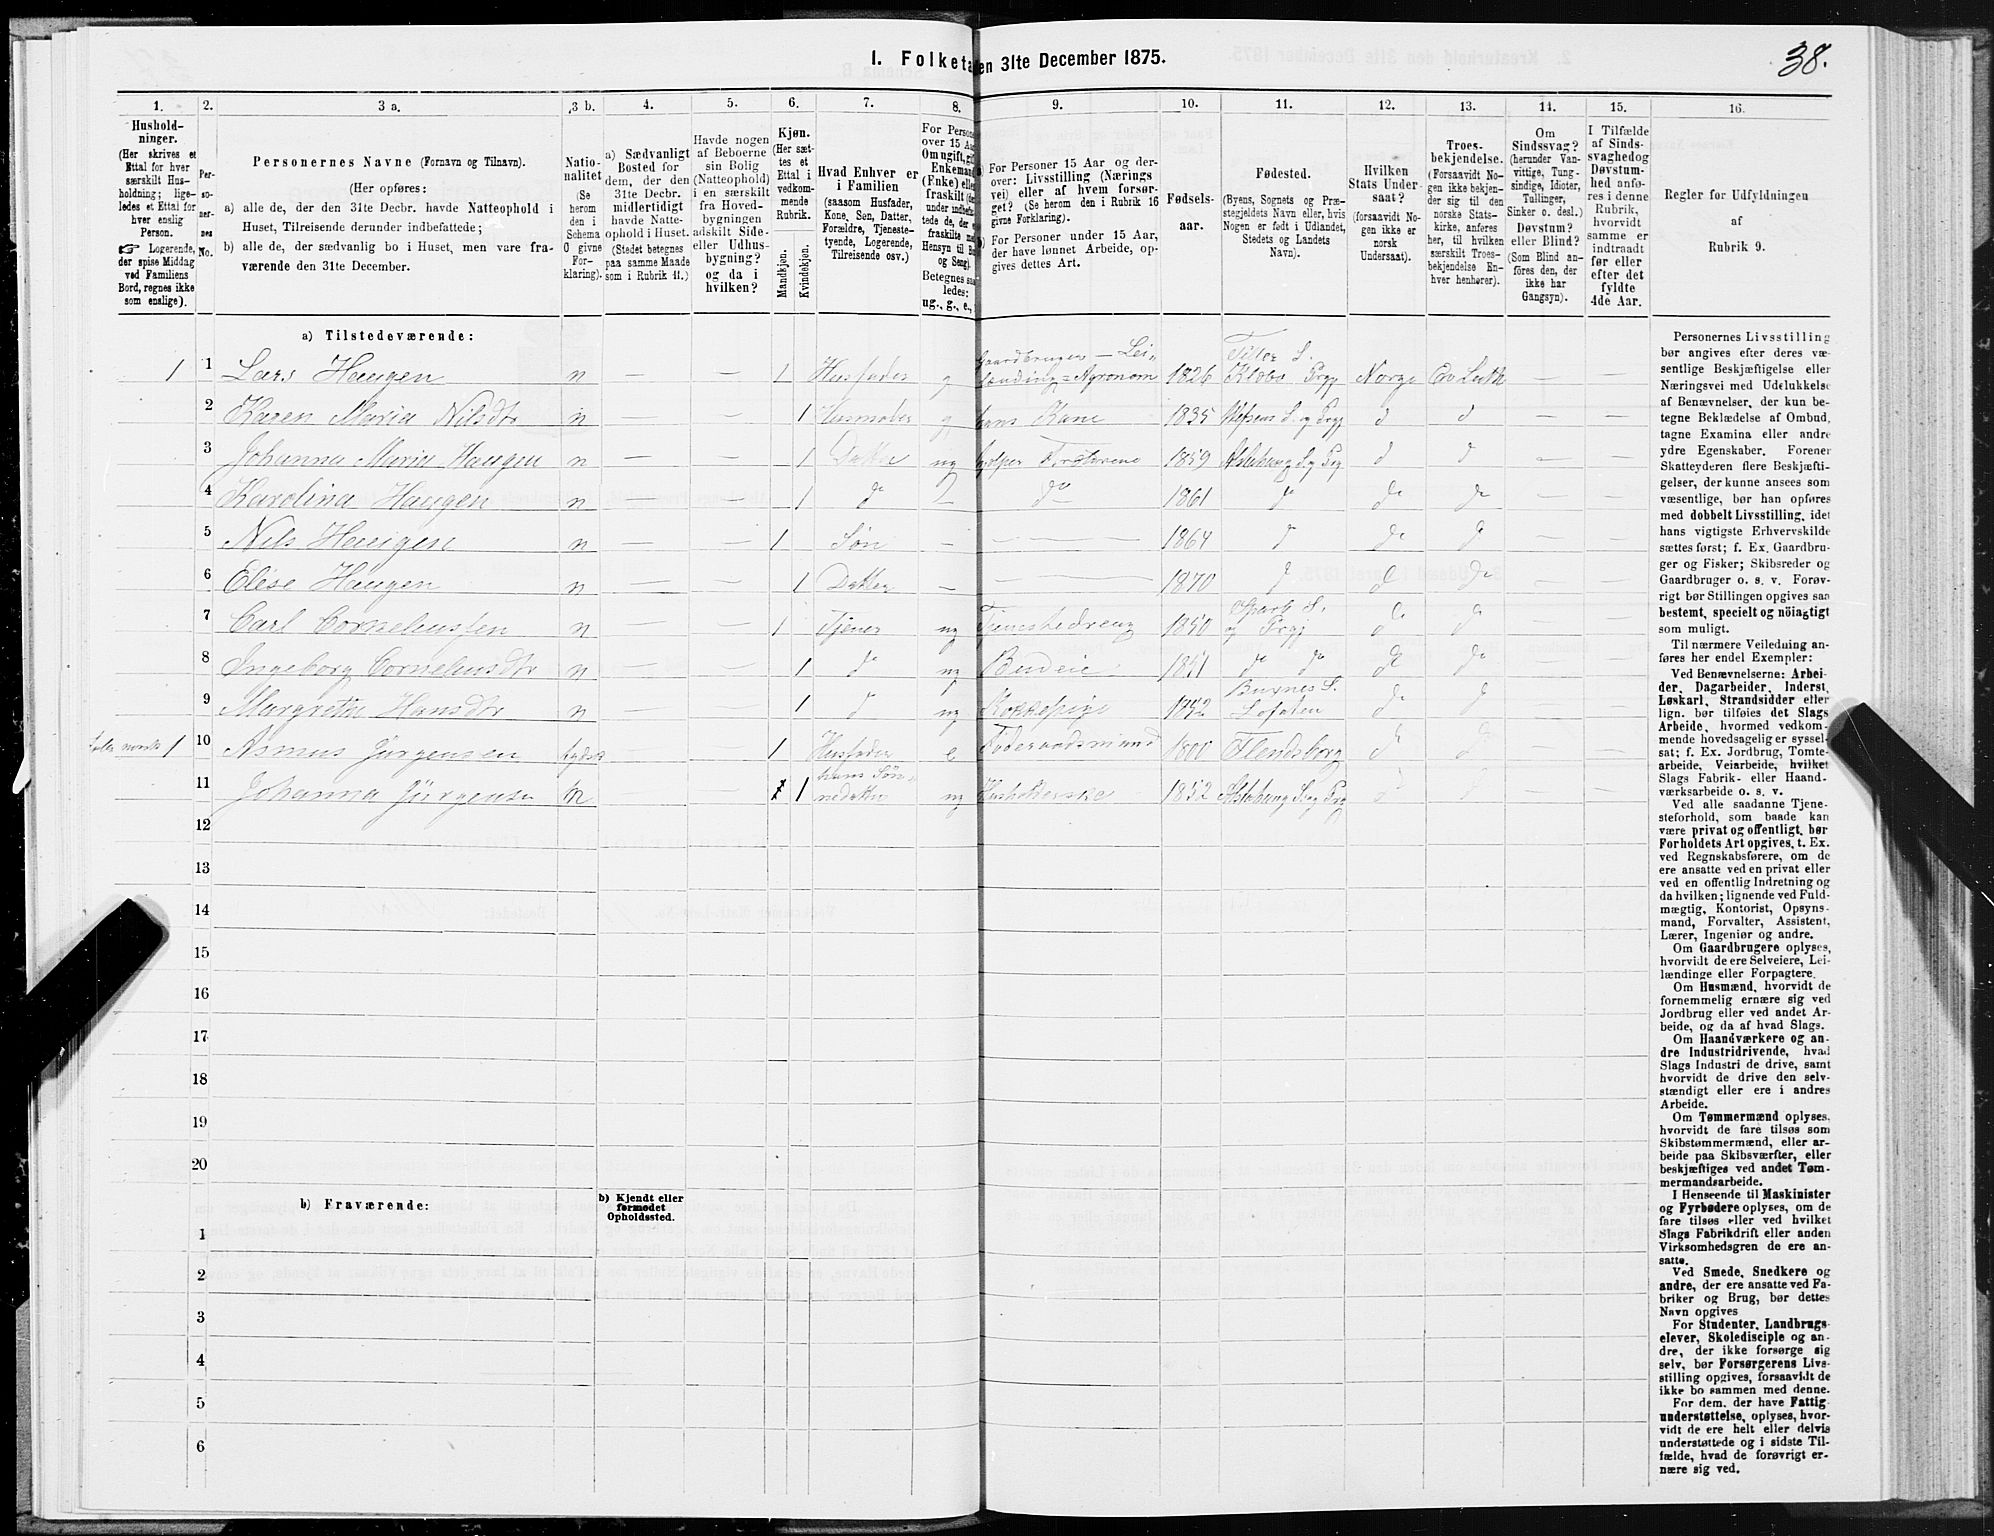 38.
I. Folketa en 31te December 1875.
1. 2. 3 a. 3 b. 4. 5. 6. 7. 8. 9. 10. 11. 12. 13. 14. 15. 16.
Hushold-
ninger.
(Her skrives et
Ettal for hver
særskilt Hus-
holdning; lige-
ledes et Ettal for
hver enslig
Person.
Logerende,
der spise Middag
ved Familiens
Bord, regnes ikke
som enslige).
Per-
so-
ner-
nes
No.
Personernes Navne (Fornavn og Tilnavn).
(Her opføres:
a) alle de, der den 31te Decbr. havde Natteophold i
Huset, Tilreisende derunder indbefattede;
b) alle de, der sædvanlig bo i Huset, men vare fra-
værende den 31te December.
Natio-
nalitet
(Se
herom
den i
Schema
O givne
For-
klaring).
a) Sædvanligt
Bosted for
dem, der den
31te Decbr.
midlertidigt
havde Natte-
ophold i Huset.
(Stedet betegnes
paa samme Maade
som i Rubrik 11.)
Havde nogen
af Beboerne
sin Bolig
(Natteophold)
i en særskilt
fra Hoved-
bygningen
adskilt Side-
eller Udhus-
bygning?
og da i
hvilken?
Kjøn.
(Her sæt-
tes et
Ettal i
vedkom-
mende
Rubrik.
Mandkjøn.
Kvindekjøn.
Hvad Enhver er
i Familien
(saasom Husfader,
Kone, Søn, Datter,
Forældre, Tjeneste-
tyende, Logerende,
Tilreisende osv.)
For Persone
over 15 Aa
Om ugift, gif
Enkemand
(Enke) elle
fraskilt (de
under indbefa
tede de, der
fraskilte me
Hensyn til Bo
og Seng).
Betegnes saa
ledes:
ug., g., e.,
a) For Personer 15 Aar og der-
over: Livsstilling (Nærings
vei) eller af hvem forsør-
get? (Se herom den i Rubrik 16
givne Forklaring).
b) For Personer under 15 Aar,
der have lønnet Arbeide, op-
gives dettes Art.
Fødsels-
aar.
Fødested.
(Byens, Sognets og Præ-
stegjeldets Navn eller, hvis
Nogen er født i Udlandet,
Stedets og Landets
Navn).
Hvilken
Stats Under-
saat?
(forsaavidt No-
gen ikke er
norsk
Undersaat).
Troes-
bekjendelse.
(Forsaavidt No-
gen ikke bekjen-
der sig til den
norske Stats-
kirke, anføres
her, til hvilken
særskilt Troes-
bekjendelse En-
hver henhører).
Om
Sindssvag?
(herunder Van-
vittige, Tung-
sindige, Idioter,
Tullinger,
Sinker o. desl.)
Døvstum?
eller Blind?
(Som Blind an-
føres den, der
ikke har
Gangsyn).
I Tilfælde
af Sinds-
svaghed og
Døvstum-
hed anfø-
res i denne
Rubrik,
hvorvidt
samme er
indtraadt
før eller
efter det
fyldte
4de Aar.
Regler for Udfyldningen
af
Rubrik 9.
a) Tilstedeværende:
1 1 Lars Haugen n — — 1 Husfader g Gaardbruger — Lei- lænding = Agronom 1826 Tiller S. Klæbo Prgj Norge Ev Luth — —
2 Karen Maria Nilsdtr n — — 1 Husmoder g hans Kone 1835 S. og Prgj d d — —
3 Johanna Maria Haugen n — — 1 Datter ug hjelper Forældrene 1859 Alstahaug S. og Prg d d — —
4 Karolina Haugen n — — 1 do — do 1861 do do do — —
5 Nils Haugen n — — 1 Søn — — 1864 d do do — —
6 Elise Haugen n — — 1 Datter — — 1870 d d do — —
7 Carl Corneliussen n — — 1 Tjener ug Tjenestedreng 1850 S. og Prgj do d — —
8 Ingeborg Corneliusdtr n — — 1 do ug Budeie 1851 do do do do — —
9 Margrethe Hansdtr n — — 1 d ug Kokkepige 1842 Buxnes S. Lofoten do d — —
taler norsk 1 10 Asmus Jürgensen tydsk — — 1 Husfader e Føderaadsmand 1800 Flensborg do do — —
11 Johanna Jürgense n — — 1 hans Søn- nedatter ug Husholderske 1852 Alstahaug S. og Prg d d — —
12
13
14
15
16
17
18
19
20
b) Fraværende:
b) Kjendt eller
formodet
Opholdssted.
1
2
3
4
5
6
Personernes Livsstilling
bør angives efter deres væ-
sentlige Beskjæftigelse eller
Næringsvei med Udelukkelse
af Benævnelser, der kun be-
tegne Beklædelse af Ombud,
tagne Examina eller andre
ydre Egenskaber. Forener
Skatteyderen flere Beskjæfti-
gelser, der kunne ansees som
væsentlige, bør han opføres
med dobbelt Livsstilling, idet
hans vigtigste Erhvervskilde
sættes først; f. Ex. Gaardbru-
ger og Fisker; Skibsreder og
Gaardbruger o. s. v. Forøv-
rigt bør Stillingen opgives saa
bestemt, specielt og nöiagtigt
som muligt.
Til nærmere Veiledning an-
føres her endel Exempler:
Ved Benævnelserne: Arbei-
der, Dagarbeider, Inderst,
Løskarl, Strandsidder eller
lign. bør tilføies det Slags
Arbeide, hvormed vedkom-
mende hovedsagelig er syssel-
sat; f. Ex. Jordbrug, Tomte-
arbeide, Veiarbeide, hvilket
Slags Fabrik- eller Haand-
værksarbeide o. s. v.
Ved alle saadanne Tjene-
steforhold, som baade kan
være privat og offentligt, bør
Forholdets Art opgives, t. Ex.
ved Regnskabsførere, om de
ere ansatte ved en privat eller
ved en offentlig Indretning og
da hvilken; lignende ved Fuld-
mægtig, Kontorist, Opsyns-
mand, Forvalter, Assistent,
Lærer, Ingeniør og andre.
Om Gaardbrugere oplyses,
hvorvidt de ere Selveiere, Lei-
lændinge eller Forpagtere.
Om Husmænd, hvorvidt de
fornemmelig ernære sig ved
Jordbrug eller ved andet Ar-
beide, og da af hvad Slags.
Om Haandværkere og an-
dre Industridrivende, hvad
Slags Industri de drive, samt
hvorvidt de drive den selv-
stændigt eller ere i andres
Arbeide.
Om Tømmermænd oplyses,
hvorvidt de fare tilsøs som
Skibstømmermænd, eller ar-
beide paa Skibsværfter, eller
beskjæftiges ved andet Tøm-
mermandsarbeide.
I Henseende til Maskinister
og Fyrbødere oplyses, om de
fare tilsøs eller ved hvilket
Slags Fabrikdrift eller anden
Virksomhedsgren de ere an-
satte.
Ved Smede, Snedkere og
andre, der ere ansatte ved Fa-
briker og Brug, bør dettes
Navn opgives
For Studenter, Landbrugs-
elever, Skoledisciple og an-
dre, der ikke forsørge sig
selv, bør Forsørgerens Livs-
stilling opgives, forsaavidt de
ikke bo sammen med denne.
For dem, der have Fattig-
understøttelse, oplyses, hvor-
vidt de ere helt eller delvis
understøttede og i sidste Til-
fælde, hvad de forøvrigt er-
nære sig ved.